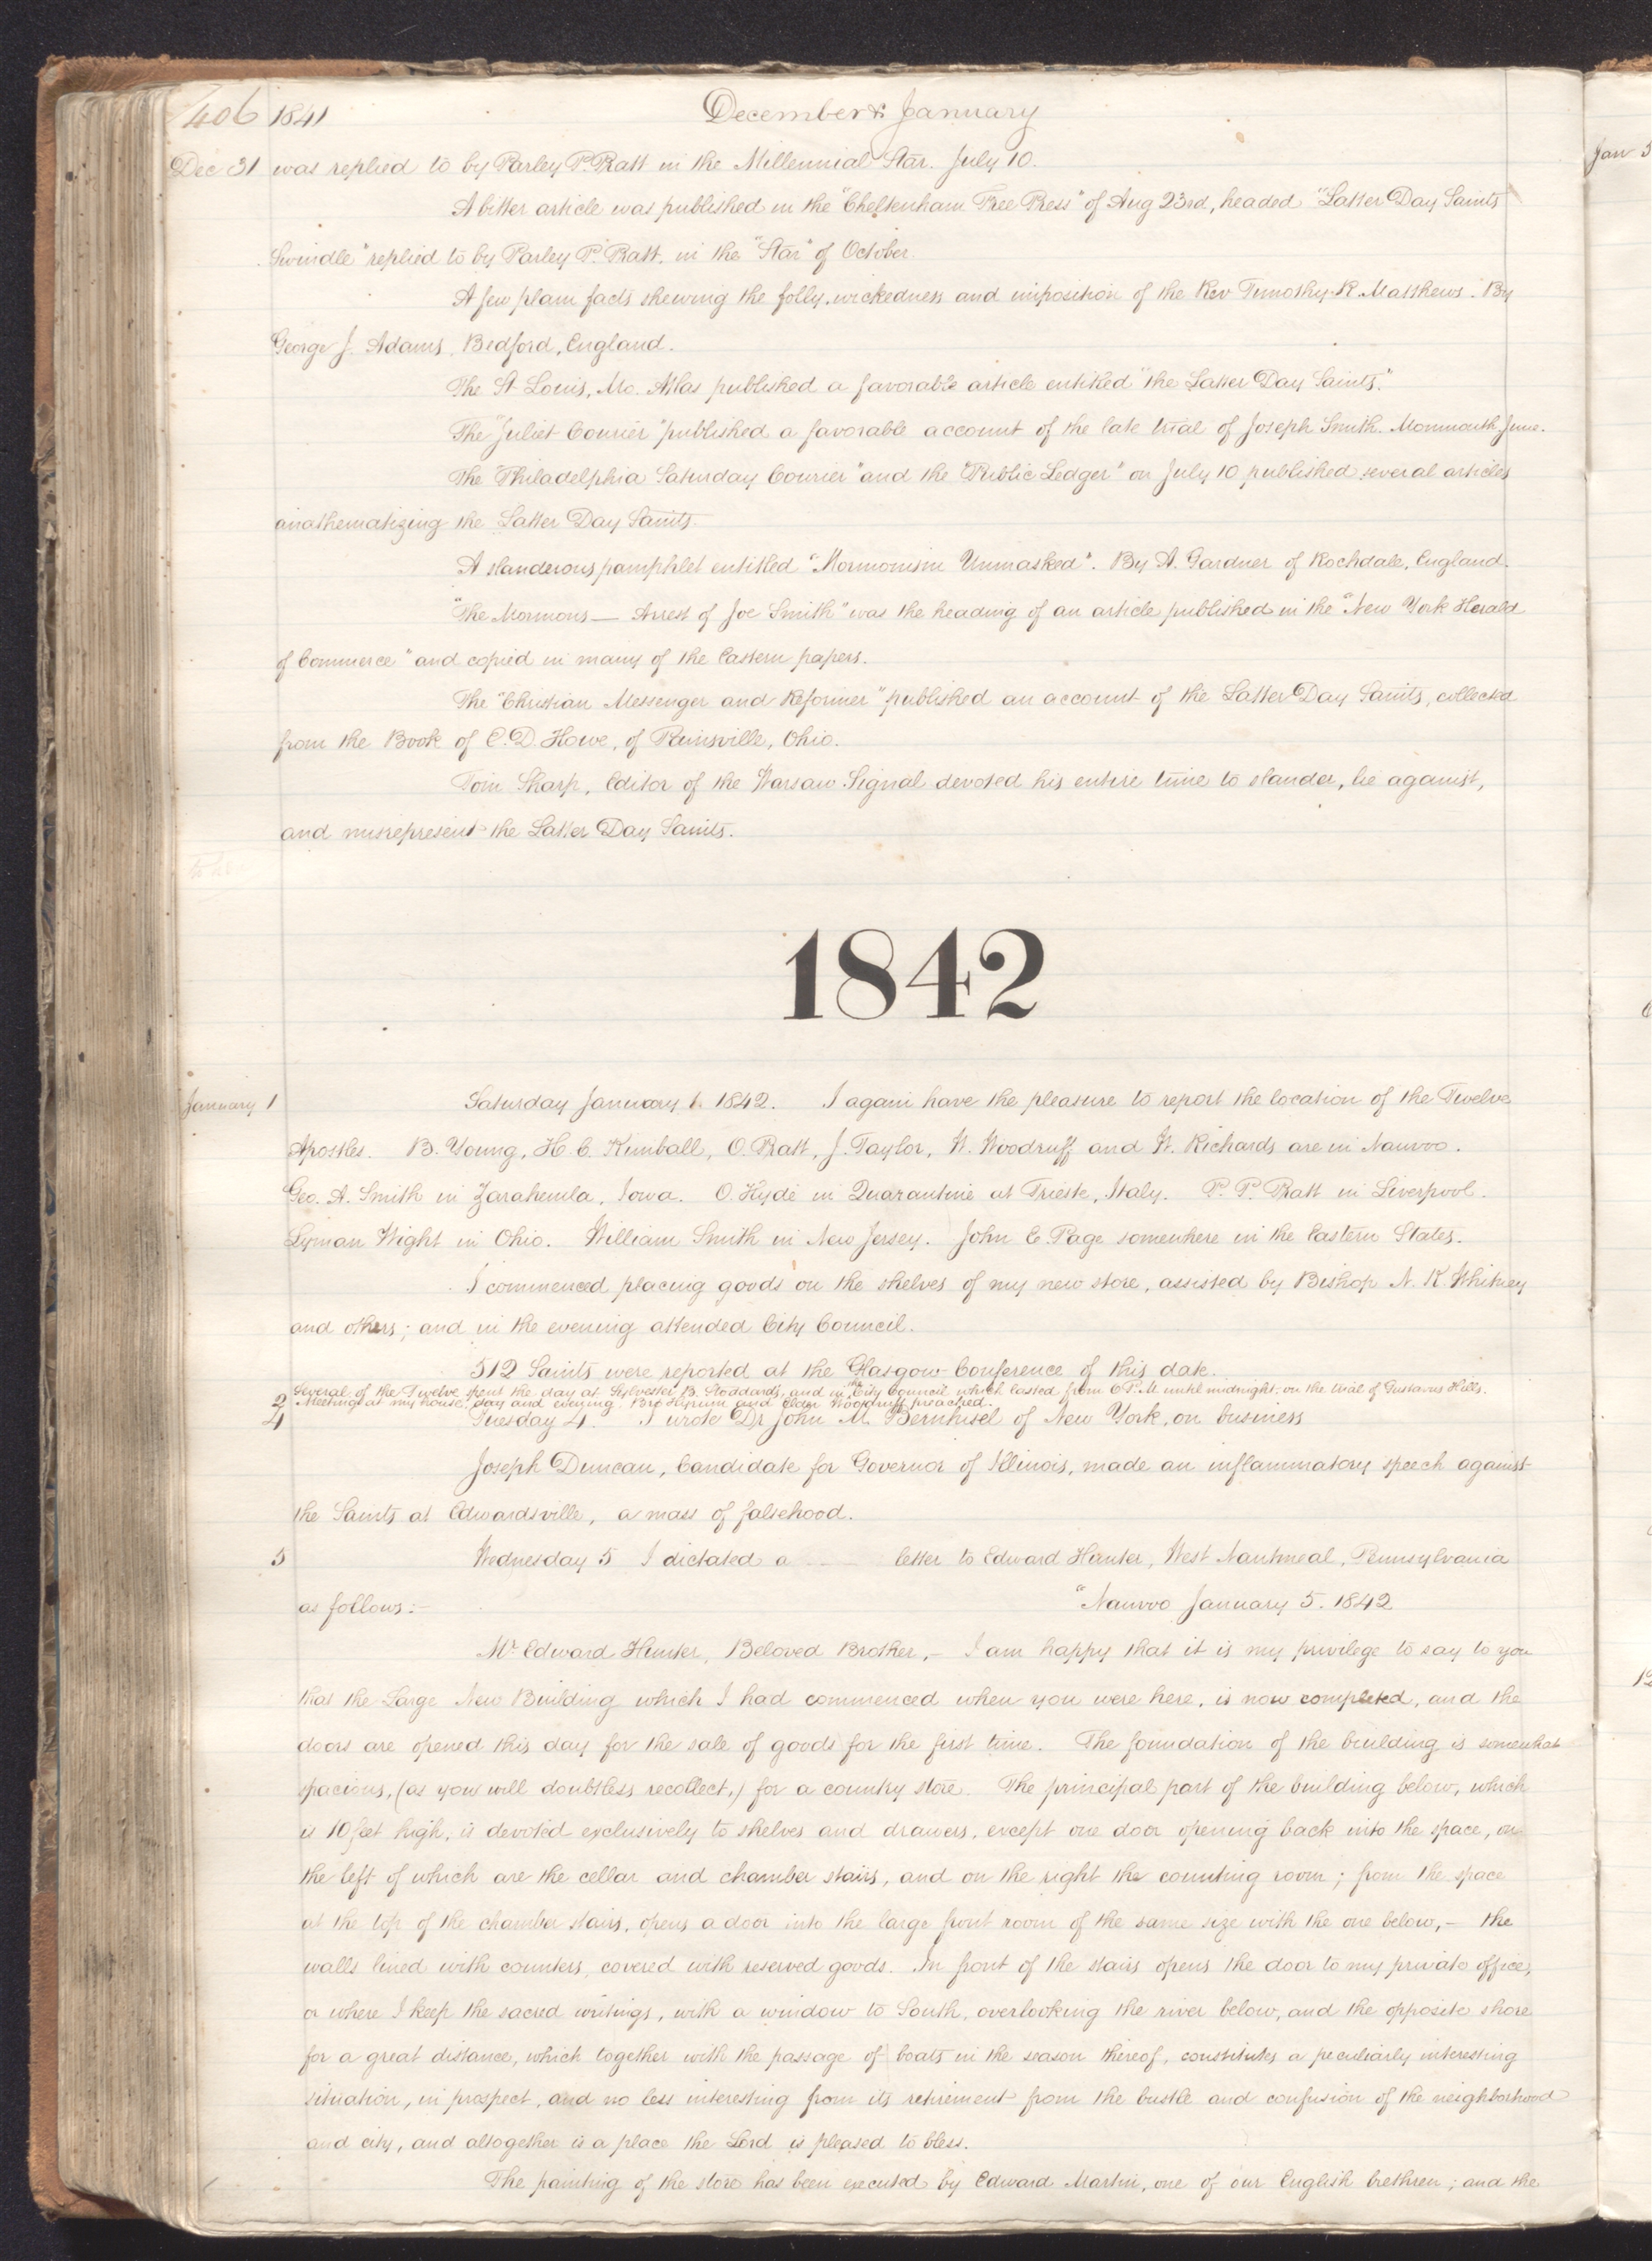 406 1841 December & January
Dec 31 was replied to by Parley P. Pratt in the Millennial Star. July 10.
A bitter article was published in the "Cheltenham Free Press" of Aug 23rd, headed "Latter Day Saints
Swindle" replied to by Parley P. Pratt, in the "Star" of October.
A few plain facts shewing the folly, wickedness and imposition of the Rev Timothy R. Matthews. By
George J. Adams, Bedford, England.
The St Louis, Mo. Atlas published a favorable article entitled "the Latter Day Saints."
The "Juliet Courier" published a favorable account of the late trial of Joseph Smith. Monmouth June.
The "Philadelphia Saturday Courier" and the "Public Ledger" on July 10 published several articles
anathematizing the Latter Day Saints.
A slanderous pamphlet entitled "Mormonism Unmasked". By A. Gardner of Rochdale, England.
"The Mormons — Arrest of Joe Smith" was the heading of an article published in the "New York Herald
of Commerce" and copied in many of the Eastern papers.
The "Christian Messenger and Reformer" published an account of the Latter Day Saints, collected
from the Book of E. D. Howe, of Painsville, Ohio.
Tom Sharp, Editor of the Warsaw Signal devoted his entire time to slander, lie against,
and misrepresent the Latter Day Saints.
1842
January 1 Saturday January 1. 1842. I again have the pleasure to report the location of the Twelve
Apostles. B. Young, H. C. Kimball, O. Pratt, J. Taylor, W. Woodruff and W. Richards are in Nauvoo.
Geo. A. Smith in Zarahemla, Iowa. O. Hyde in Quarantine at Trieste, Italy. P. P. Pratt in Liverpool.
Lyman Wight in Ohio. William Smith in New Jersey. John E. Page somewhere in the Eastern States.
I commenced placing goods on the shelves of my new store, assisted by Bishop N. K. Whitney
and others; and in the evening attended City Council.
512 Saints were reported at the Glasgow Conference of this date.
Several of the Twelve spent the day at Sylvester B. Stoddard's, and in the City Council which lasted from 6 P.M. until midnight, on the trial of Gustavus Hills.
2 Meetings at my house, day and evening. Bro Hyrum and Elder Woodruff preached.
4 Tuesday 4. I wrote Dr John M. Bernhisel of New York, on business
Joseph Duncan, Candidate for Governor of Illinois, made an inflammatory speech against
the Saints at Edwardsville, a mass of falsehood.
5 Wednesday 5 I dictated a letter to Edward Hunter, West Nantmeal, Pennsylvania
as follows:— "Nauvoo January 5. 1842
Mr Edward Hunter, Beloved Brother,— I am happy that it is my privilege to say to you
that the Large New Building which I had commenced when you were here, is now completed, and the
doors are opened this day for the sale of goods for the first time. The foundation of the building is somewhat
spacious, (as you will doubtless recollect,) for a country store. The principal part of the building below, which
is 10 feet high, is devoted exclusively to shelves and drawers, except one door opening back into the space, on
the left of which are the cellar and chamber stairs, and on the right the counting room; from the space
at the top of the chamber stairs, opens a door into the large front room of the same size with the one below,— the
walls lined with counters, covered with reserved goods. In front of the stairs opens the door to my private office,
or where I keep the sacred writings, with a window to South, overlooking the river below, and the opposite shore
for a great distance, which together with the passage of boats in the season thereof, constitutes a peculiarly interesting
situation, in prospect, and no less interesting from its retirement from the bustle and confusion of the neighborhood
and city, and altogether is a place the Lord is pleased to bless.
The painting of the store has been executed by Edward Martin, one of our English brethren; and the
Jan 5